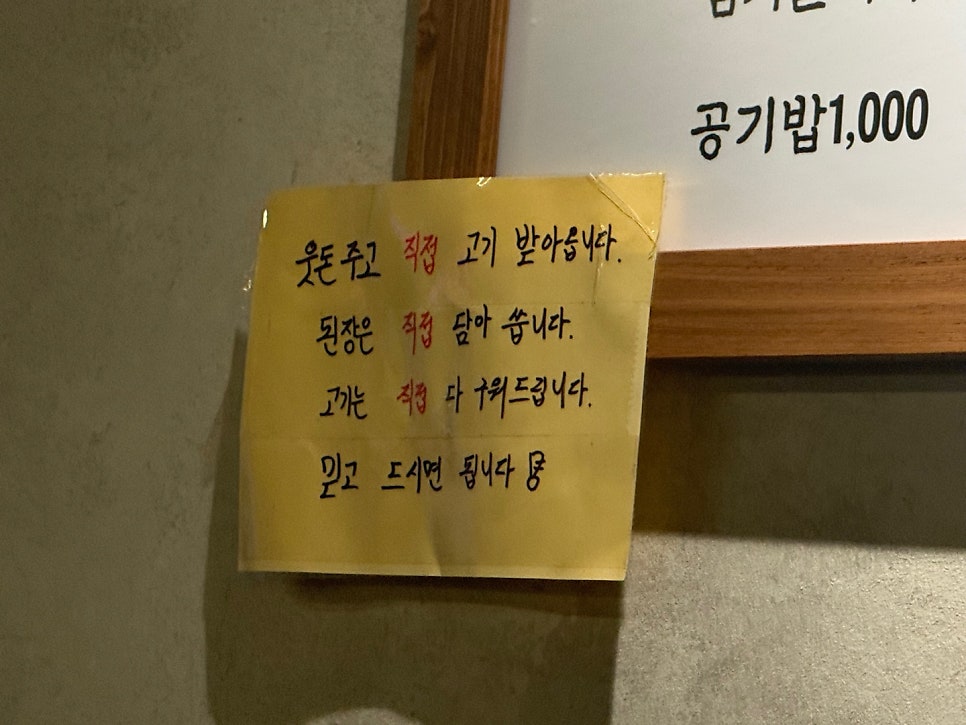 공기밥1,000
웃돈 주고 직접 고기 받아옵니다.
된장은 직접 담아 씁니다.
고기는 직접 다 구워드립니다.
믿고 드시면 됩니다